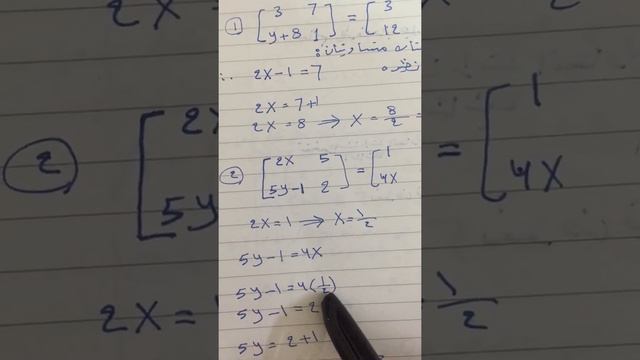 ① [3 7
y+8 1] = [3
12
∴ 2X-1=7
2X=7+1
2X=8 ⇒ X=8/2 =
② [2X 5
5y-1 2] = [1
4X
2X=1 ⇒ X=1/2
5y-1=4X
5y-1=4(1/2)
5y-1=2
5y=2+1